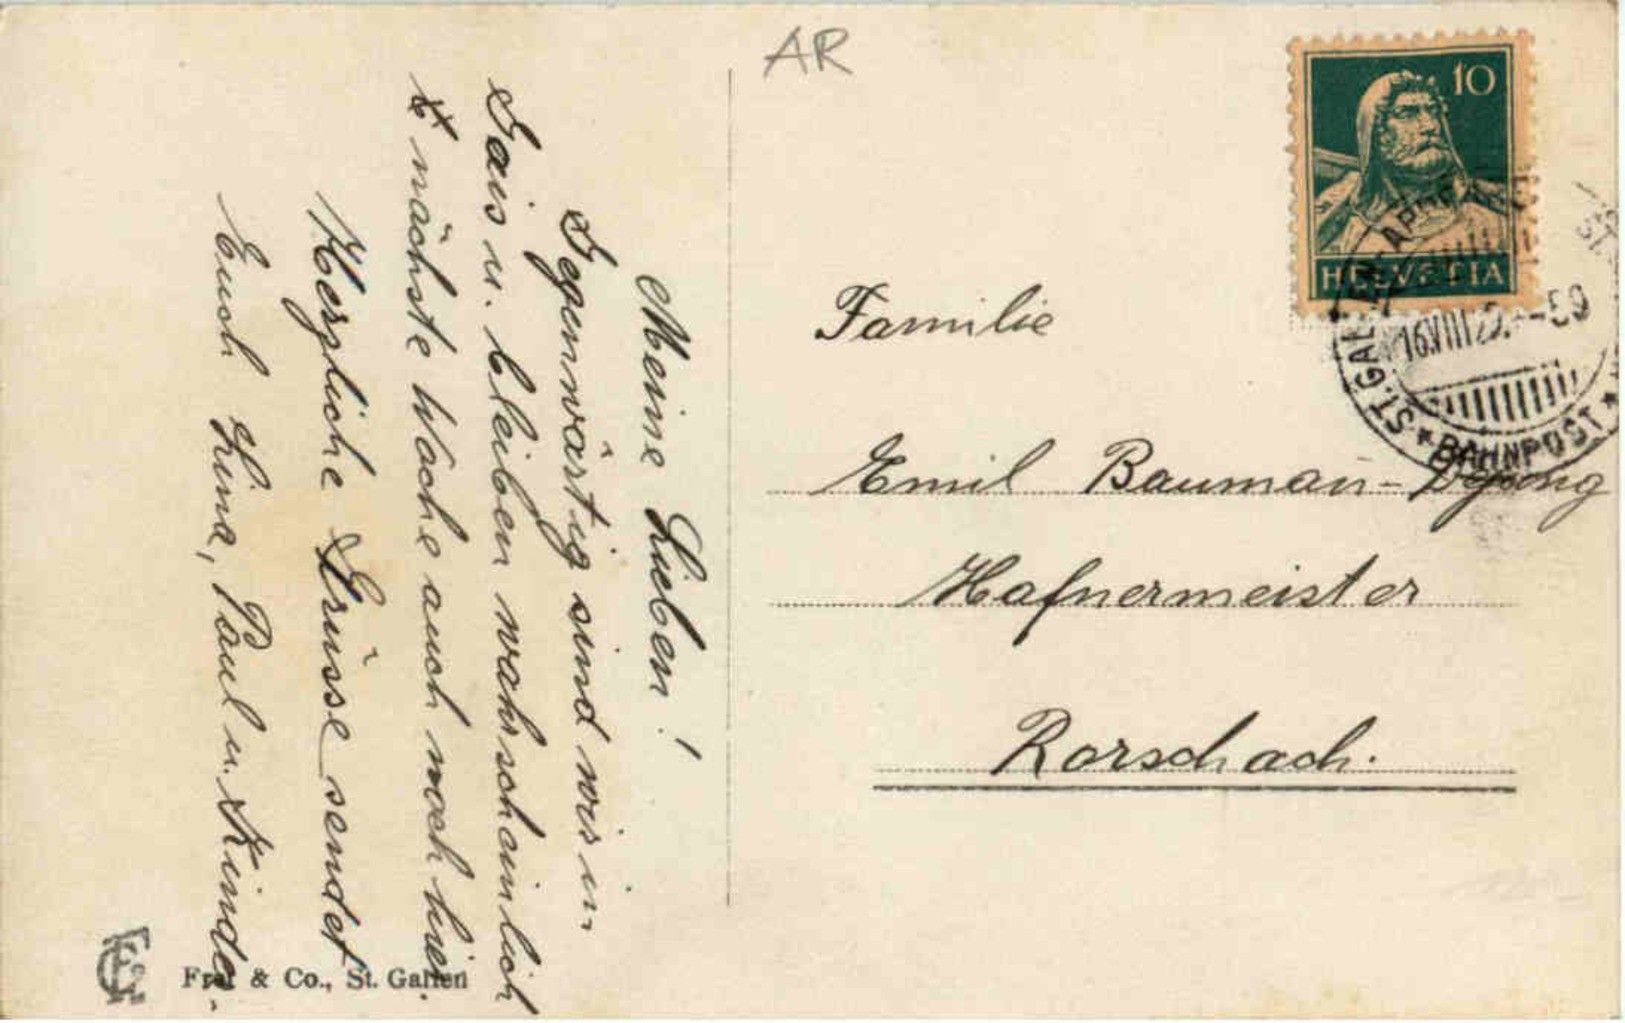 Meine Lieben!
Gegenwärtig sind wir in
Gais u. bleiben wahrscheinlich
nächste Woche auch noch hier.
Herzliche Grüsse sendet
Euch Lina, Paul u. Kinder.
AR
10
HELVETIA
ST. GALLEN-APPENZELL
BAHNPOST
Familie
Emil Bauman-
Hafnermeister
Rorschach.
Frei & Co., St. Gallen